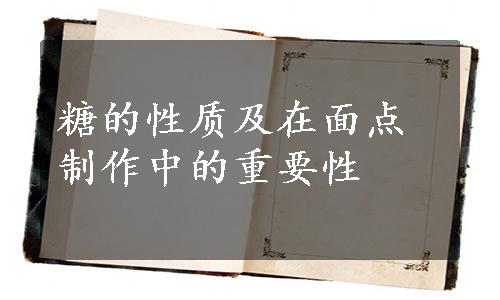 糖的性质及在面点
制作中的重要性